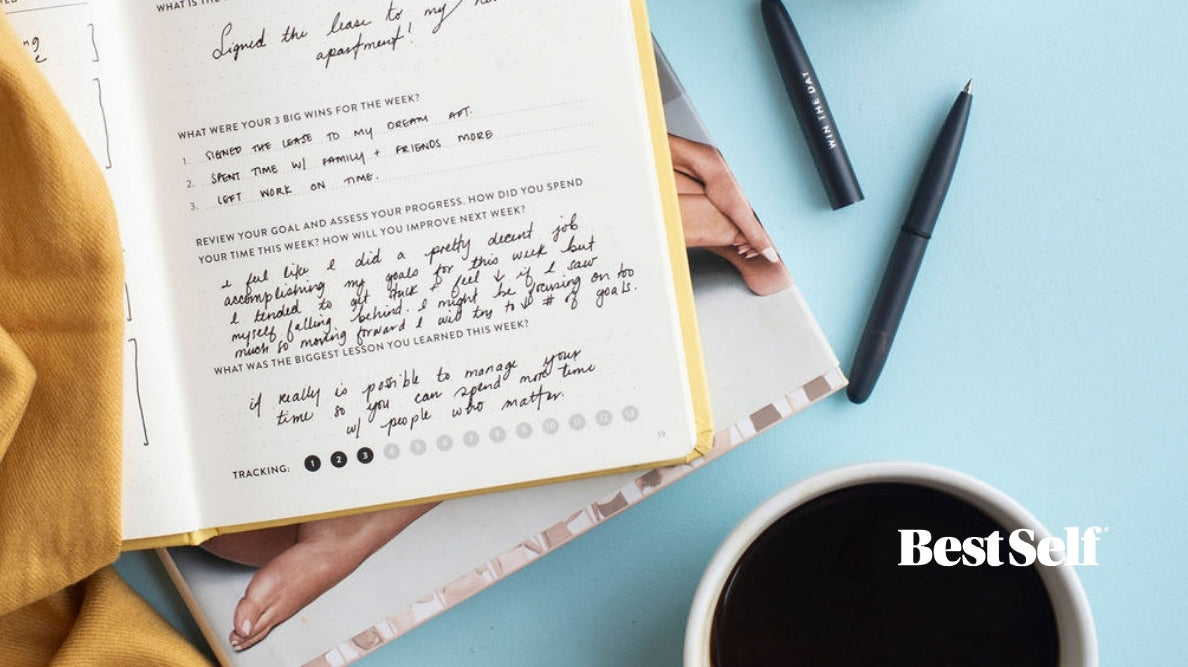 WHAT IS THE
Signed the lease to my
apartment!
WHAT WERE YOUR 3 BIG WINS FOR THE WEEK?
1. SIGNED THE LEASE TO MY DREAM APT.
2. SPENT TIME W/ FAMILY + FRIENDS MORE
3. LEFT WORK ON TIME.
REVIEW YOUR GOAL AND ASSESS YOUR PROGRESS. HOW DID YOU SPEND
YOUR TIME THIS WEEK? HOW WILL YOU IMPROVE NEXT WEEK?
i feel like I did a pretty decent job
accomplishing my goals for this week but
I tended to get stuck + feel ↓ if I saw
myself falling behind. I might be focusing on too
much so moving forward I will try to ↓ # of goals.
WHAT WAS THE BIGGEST LESSON YOU LEARNED THIS WEEK?
it really is possible to manage your
time so you can spend more time
w/ people who matter.
TRACKING: 1 2 3 4 5 6 7 8 9 10 11 12 13
WIN THE DAY
BestSelf®